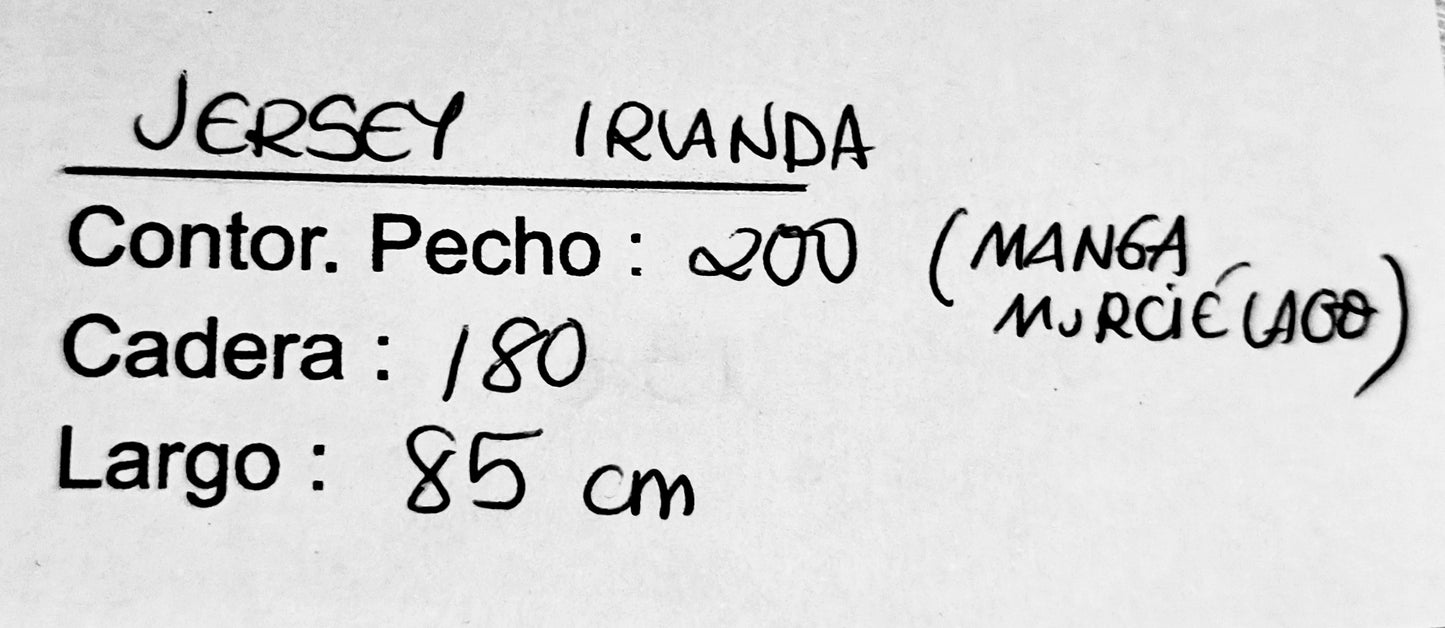 JERSEY IRLANDA
Contor. Pecho : 200 (MANGA
MURCIÉLAGO)
Cadera : 180
Largo : 85 cm